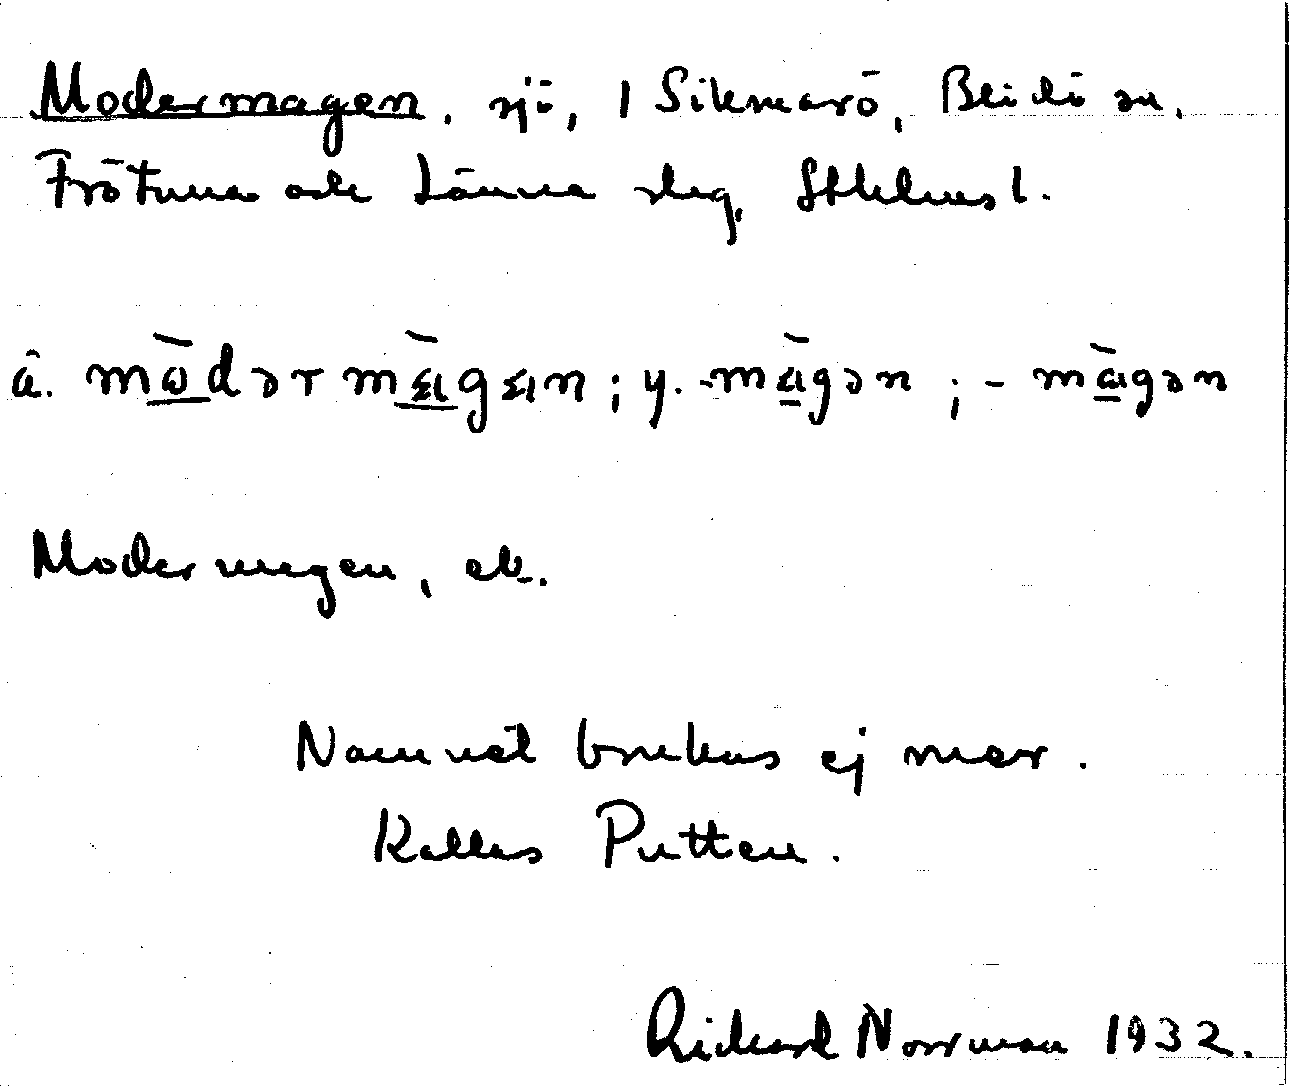 Modermagen, sjö, 1 Sikmarö, Blidö sn,
Frötuna och Länna slg, Sthlms l.
å. mὼ̲dərmà̲gan; y. -mà̲gən; -mà̲gən
Modermagen, ek.
Namnet brukas ej mer.
Kallas Putten.
Rickard Norrman 1932.